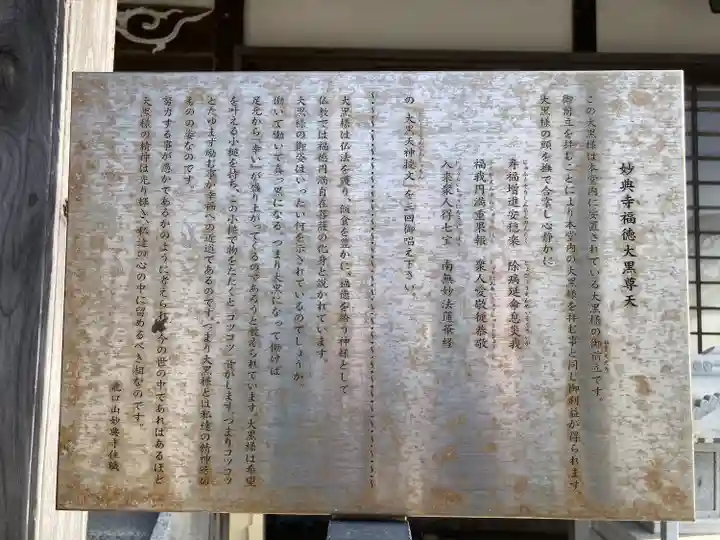 妙典寺福徳大黒尊天
この大黒様は本堂内に安置されている大黒様の御前立です。
御前立を拝むことにより本堂内の大黒様を拝む事と同じ御利益が得られます。
大黒様の頭を撫で合掌し心静かに
寿福増進安穏楽 除病延命息災我
福我円満重果報 衆人愛敬従恭敬
入来衆人得七宝 南無妙法蓮華経
の「大黒天神総文」を三回御唱え下さい。
大黒様は仏法を護り、飲食を豊かに、福徳を給う神様として
仏教では福徳円満自在菩薩の化身と説かれています。
大黒様の御姿はいったい何を示されているのでしょうか。
働いて働いて真っ黒になる。つまり大黒になって働けば
足元から「幸い」が盛り上がってくるのであろうと教えられています。大黒様は希望
を叶える小槌を持ち、この小槌で物をたたくと「コツコツ」音がします。つまりコツコツ
とたゆまず励む事が幸福への近道であるのです。つまり大黒様とは私達の精神その
ものの姿なのです。
努力する事が愚かであるかのように考えられ 今の世の中であればあるほど
大黒様の精神は光り輝き、私達の心の中に留めるべき物なのです。
龍口山妙典寺住職